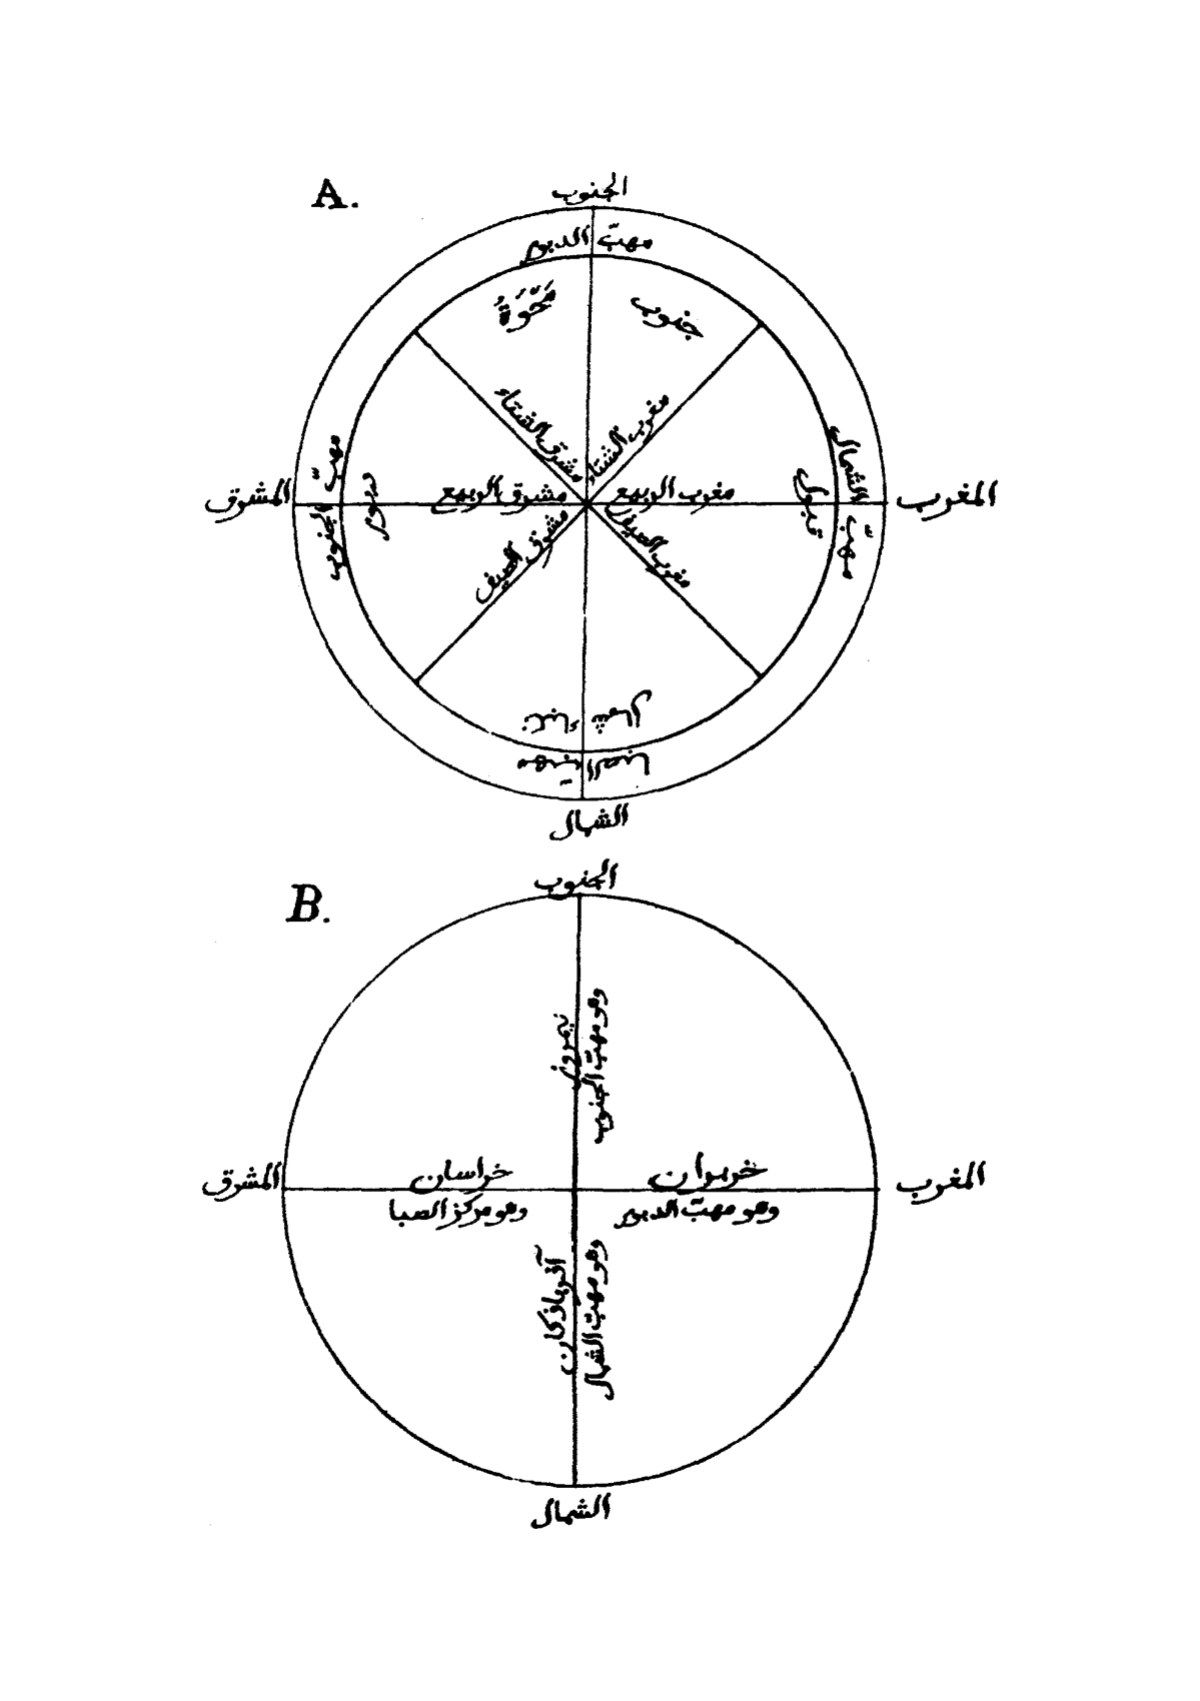 A.
الجنوب
مهبّ الدبور
مَحْوَةُ
جنوب
مشرق الشتاء
مغرب الشتاء
مهبّ الجنوب
دبور
المشرق
مشرق الربيع
مغرب الربيع
قبول
مهبّ الشمال
المغرب
مشرق الصيف
مغرب الصيف
الشمال
B.
الجنوب
نيمروز
وهو مهبّ الجنوب
المشرق
خراسان
وهو مركز الصبا
خربران
وهو مهبّ الدبور
المغرب
آذرباذكان
وهو مهبّ الشمال
الشمال